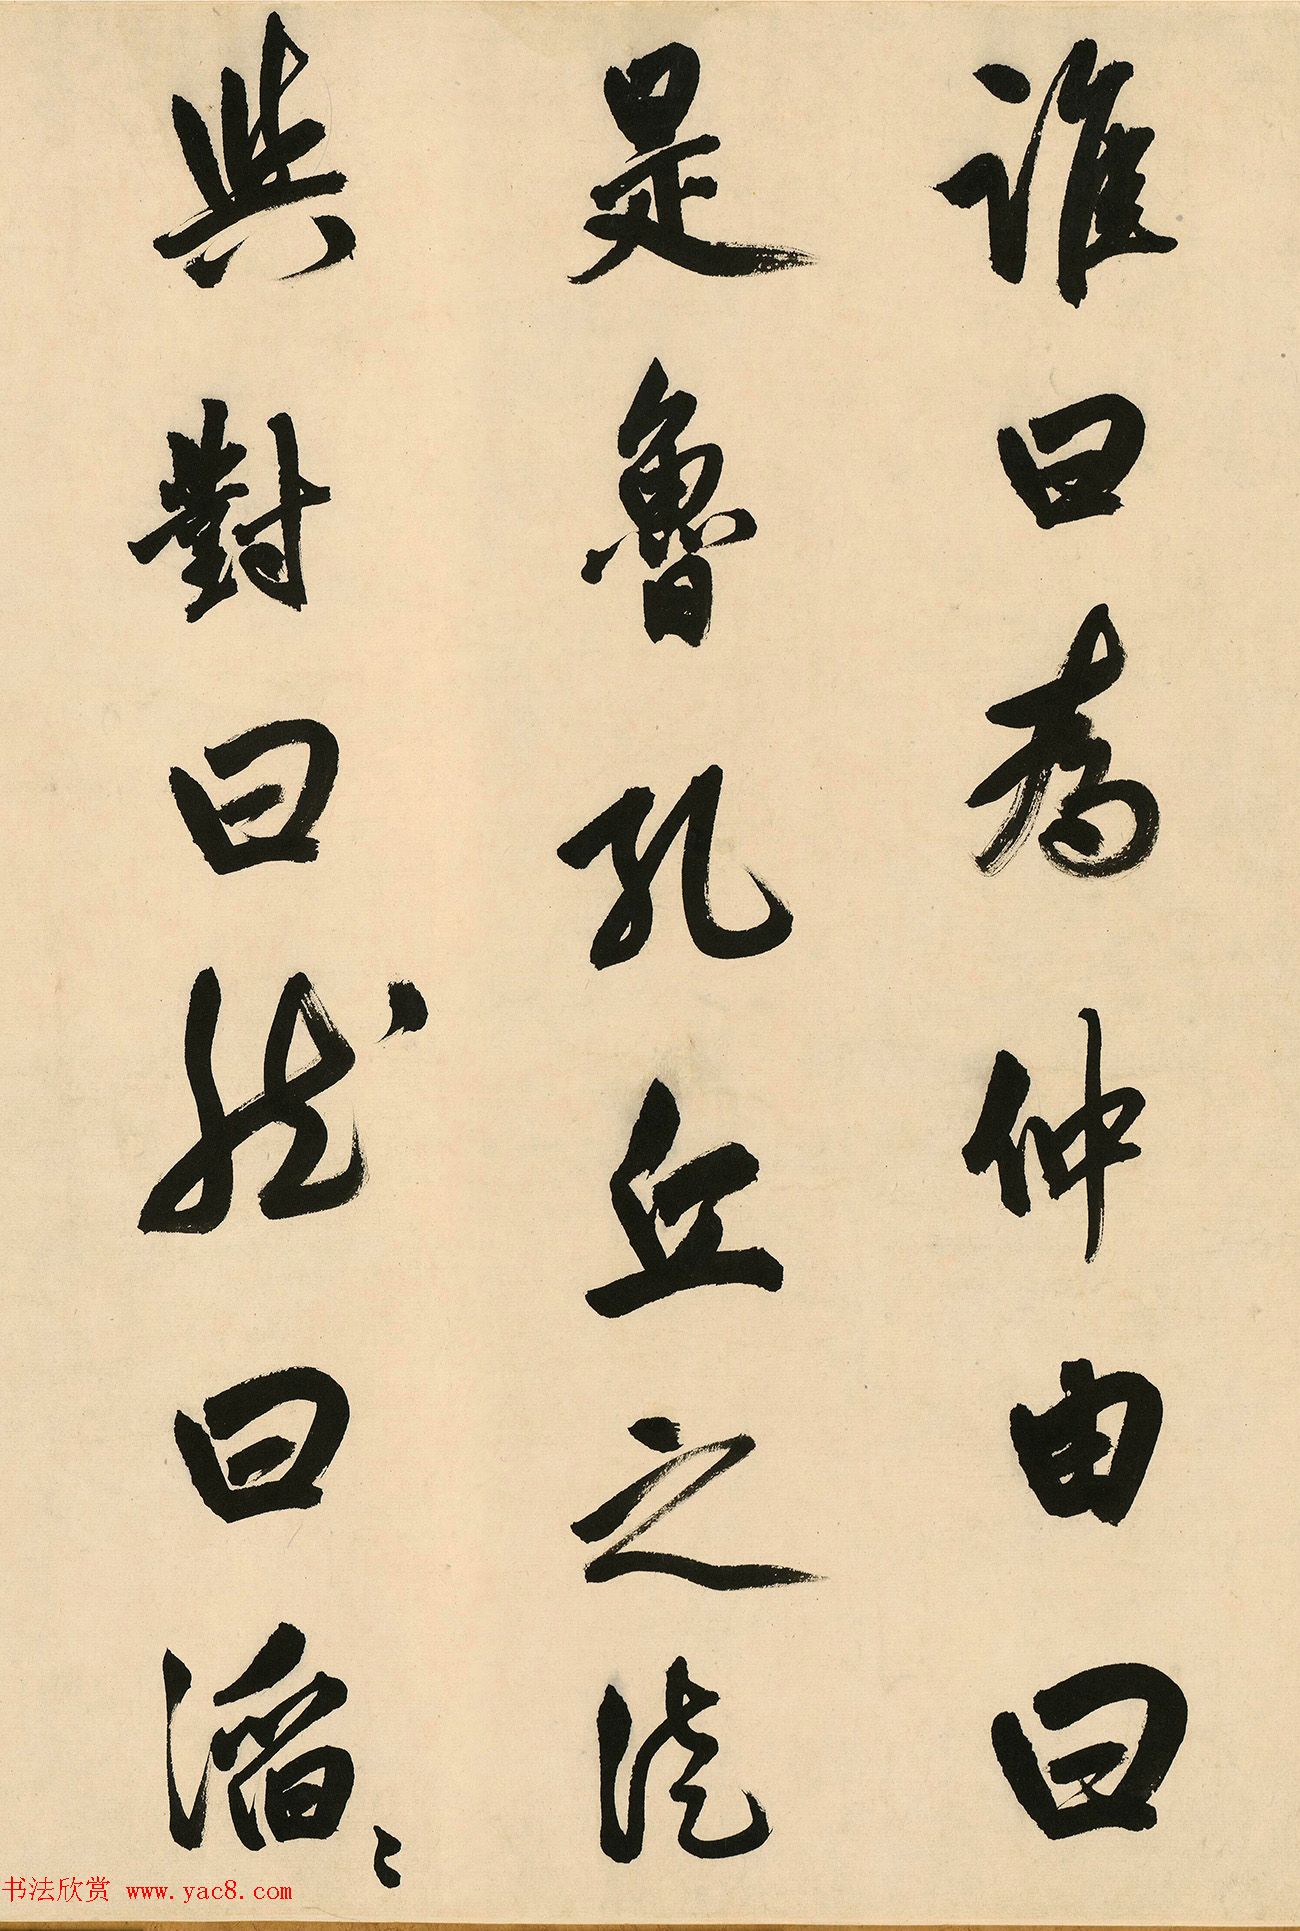 誰曰為仲由曰
是魯孔丘之徒
與對曰然曰滔〻
书法欣赏 www.yac8.com